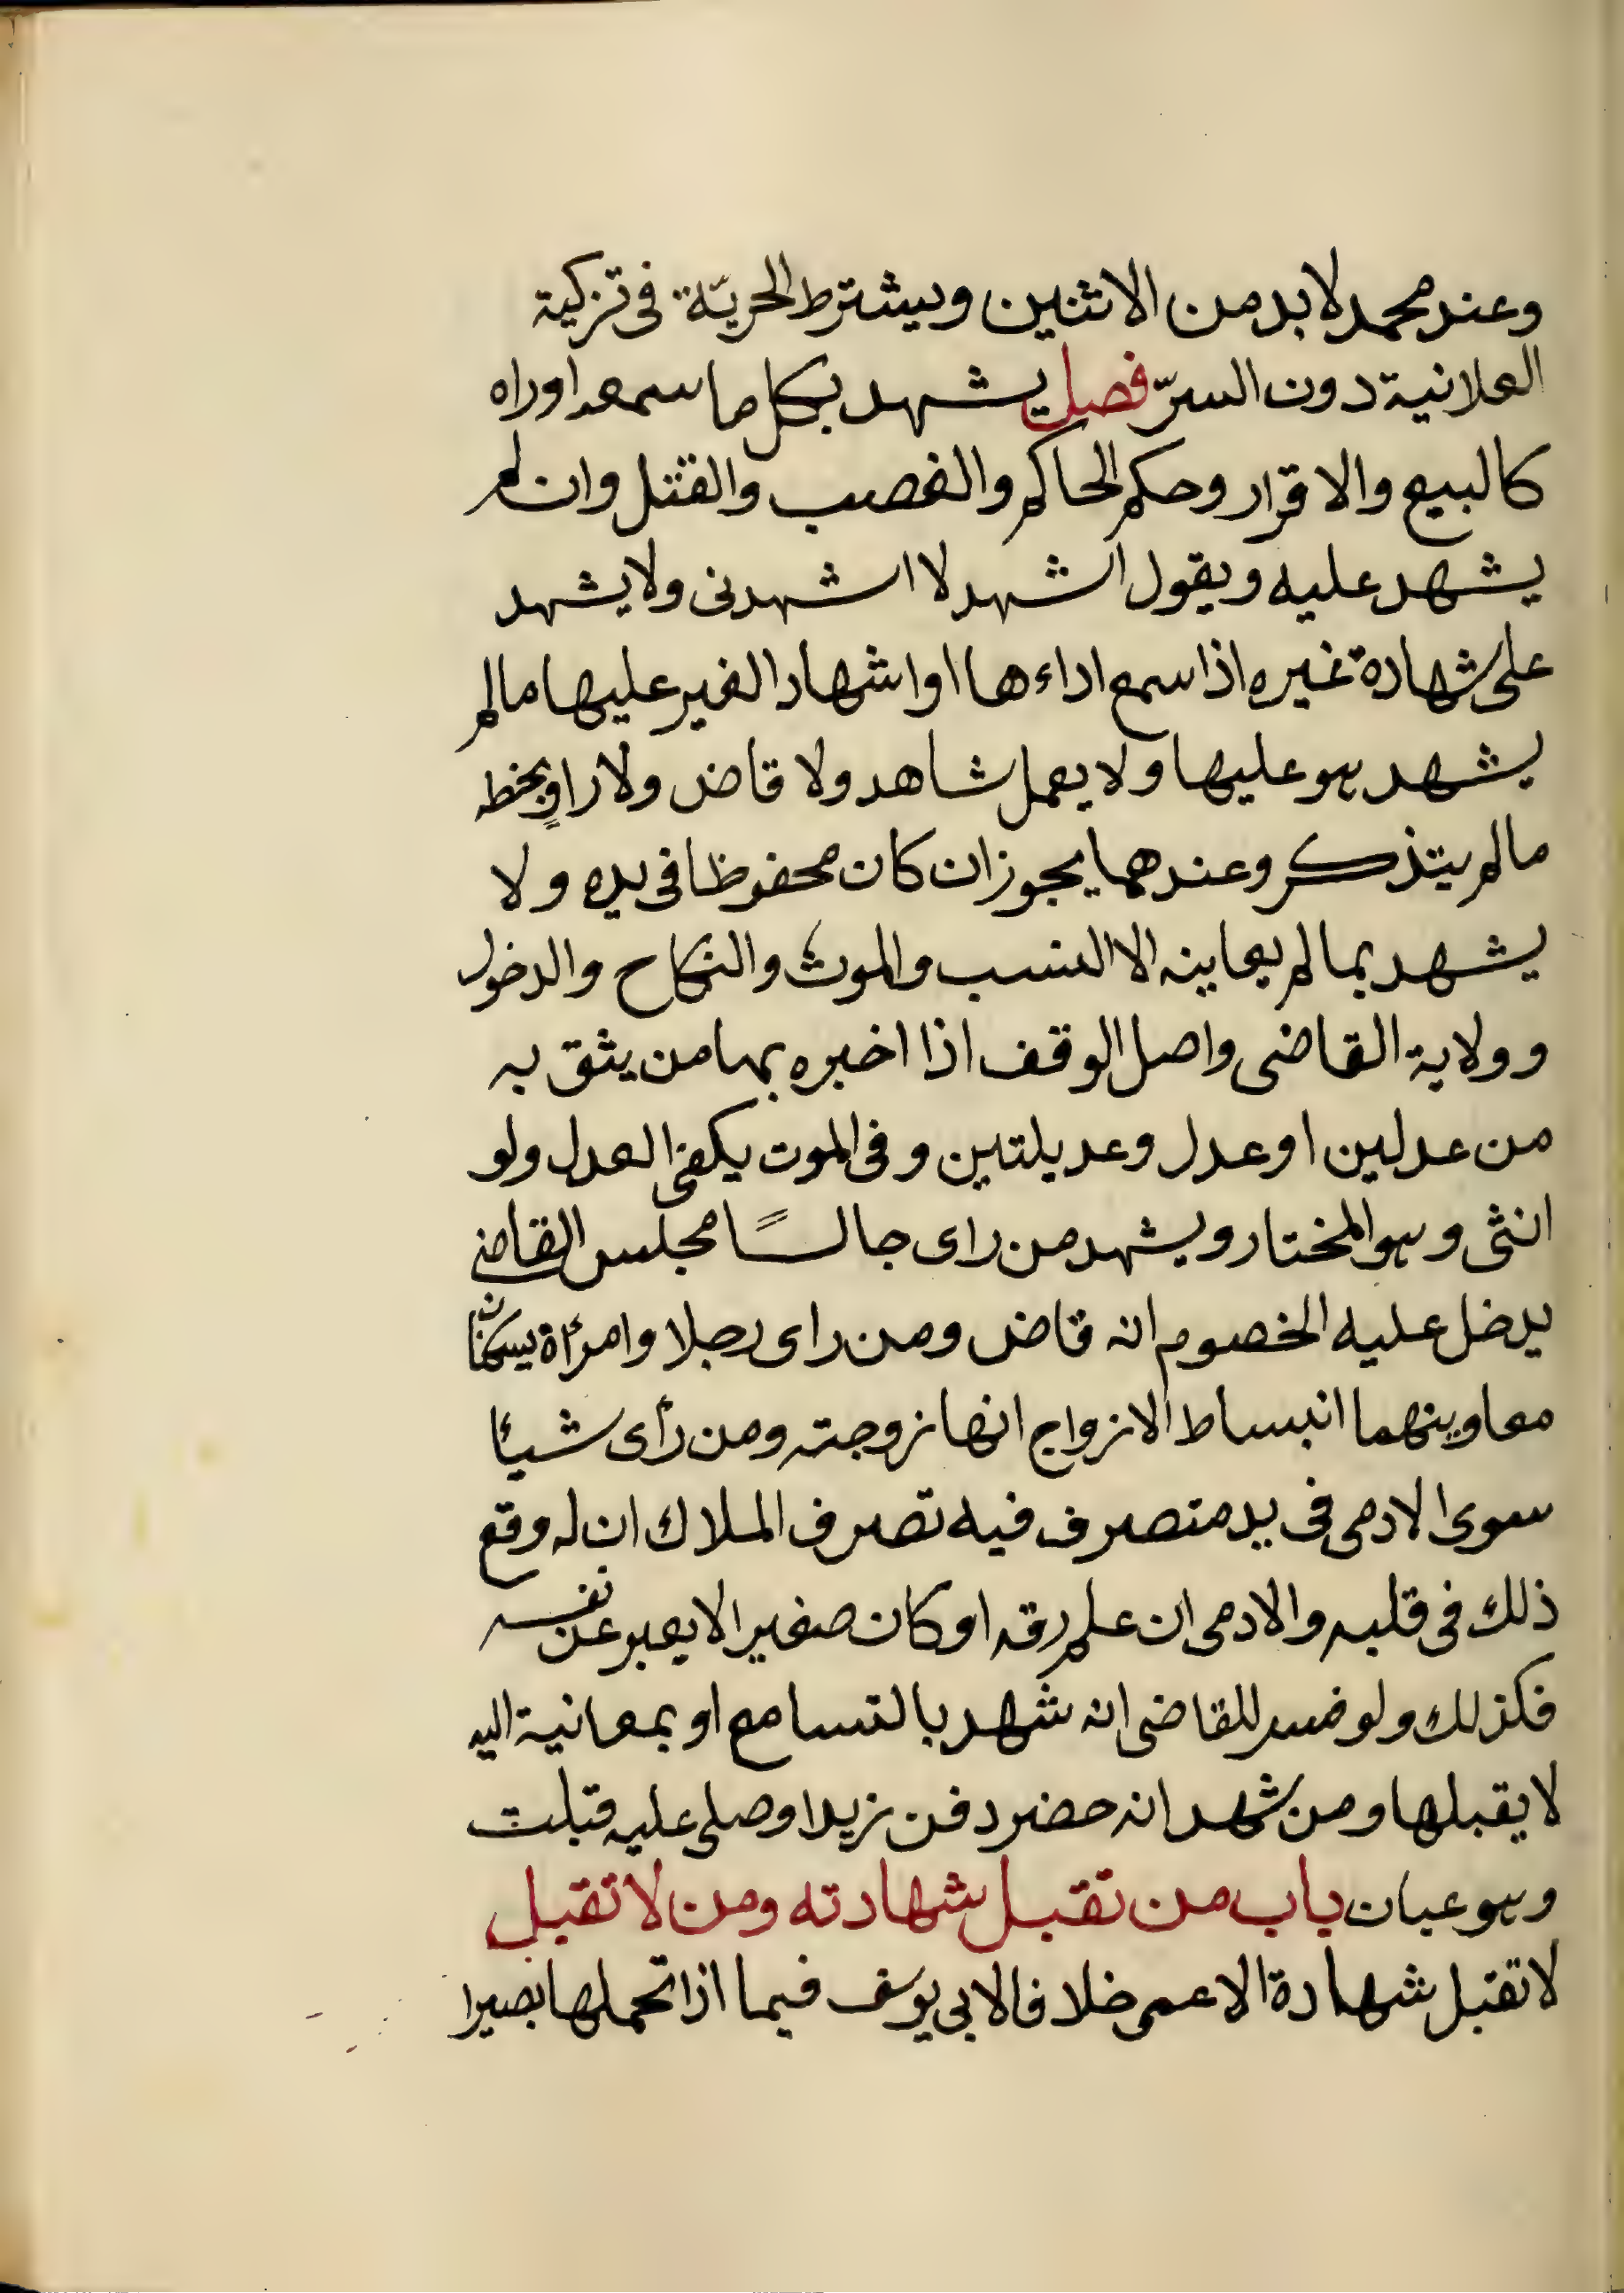 وعند محمد لا بد من الاثنين ويشترط الحريّة فى تزكية
العلانية دون السرّ فصل يشهد بكل ما سمعه او راه
كالبيع والاقرار وحكم الحاكم والغصب والقتل وان لم
يشهد عليه ويقول اشهد لا اشهدنى ولا يشهد
على شهادة غيره اذا سمع اداءها او اشهاد الغير عليها ما لم
يشهد هو عليها ولا يعمل شاهد ولا قاض ولا راوٍ بخطه
ما لم يتذكر وعندهما يجوز ان كان محفوظا فى يده ولا
يشهد بما لم يعاينه الا النسب والموت والنكاح والدخول
وولاية القاضى واصل الوقف اذا اخبره بها من يثق به
من عدلين او عدل وعديلتين وفى الموت يكفى العدل ولو
انثى وهو المختار ويشهد من راى جالسًا مجلس القاضى
يدخل عليه الخصوم انه قاض ومن راى رجلا وامرأة يسكنان
معا وبينهما انبساط الازواج انها زوجته ومن رأى شيئا
سوى الادمى فى يد متصرف فيه تصرف الملاك ان له وقع
ذلك فى قلبه والادمى ان علم رقه او كان صغيرا لا يعبر عن نفسه
فكذلك ولو فسر للقاضى انه شهد بالتسامع او بمعانية اليد
لا يقبلها ومن شهد انه حضر دفن زيد او صلى عليه قبلت
وهو عيان باب من تقبل شهادته ومن لا تقبل
لا تقبل شهادة الاعمى خلافا لابى يوسف فيما اذا تحملها بصيرا